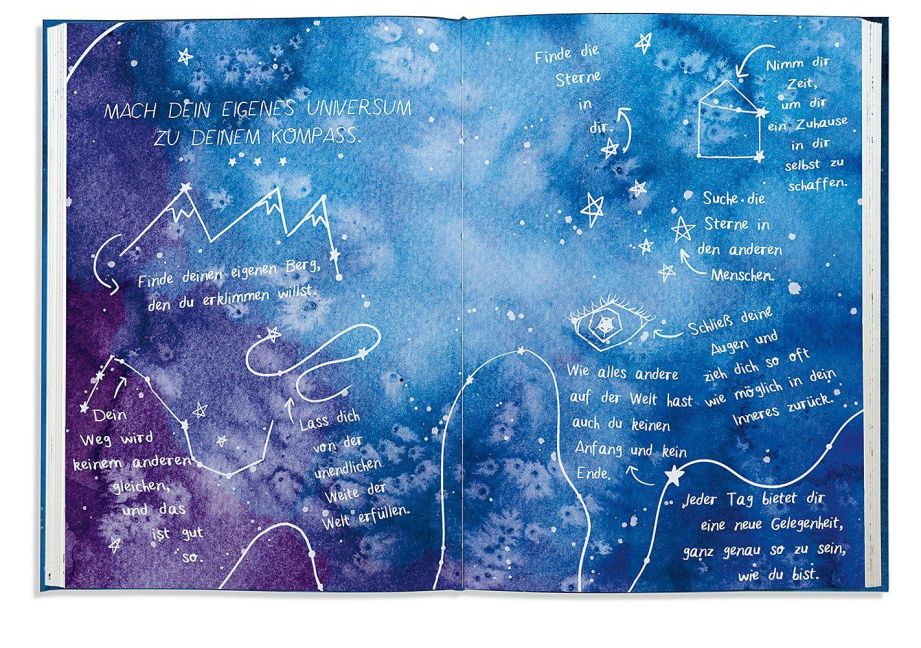 MACH DEIN EIGENES UNIVERSUM
ZU DEINEM KOMPASS.
Finde deinen eigenen Berg,
den du erklimmen willst.
Dein
Weg wird
keinem anderen
gleichen,
und das
ist gut
so.
Lass dich
von der
unendlichen
Weite der
Welt erfüllen.
Finde die
Sterne
in
dir.
Nimm dir
Zeit,
um dir
ein Zuhause
in dir
selbst zu
schaffen.
Suche die
Sterne in
den anderen
Menschen.
Schließ deine
Augen und
zieh dich so oft
wie möglich in dein
Inneres zurück.
Wie alles andere
auf der Welt hast
auch du keinen
Anfang und kein
Ende.
Jeder Tag bietet dir
eine neue Gelegenheit,
ganz genau so zu sein,
wie du bist.